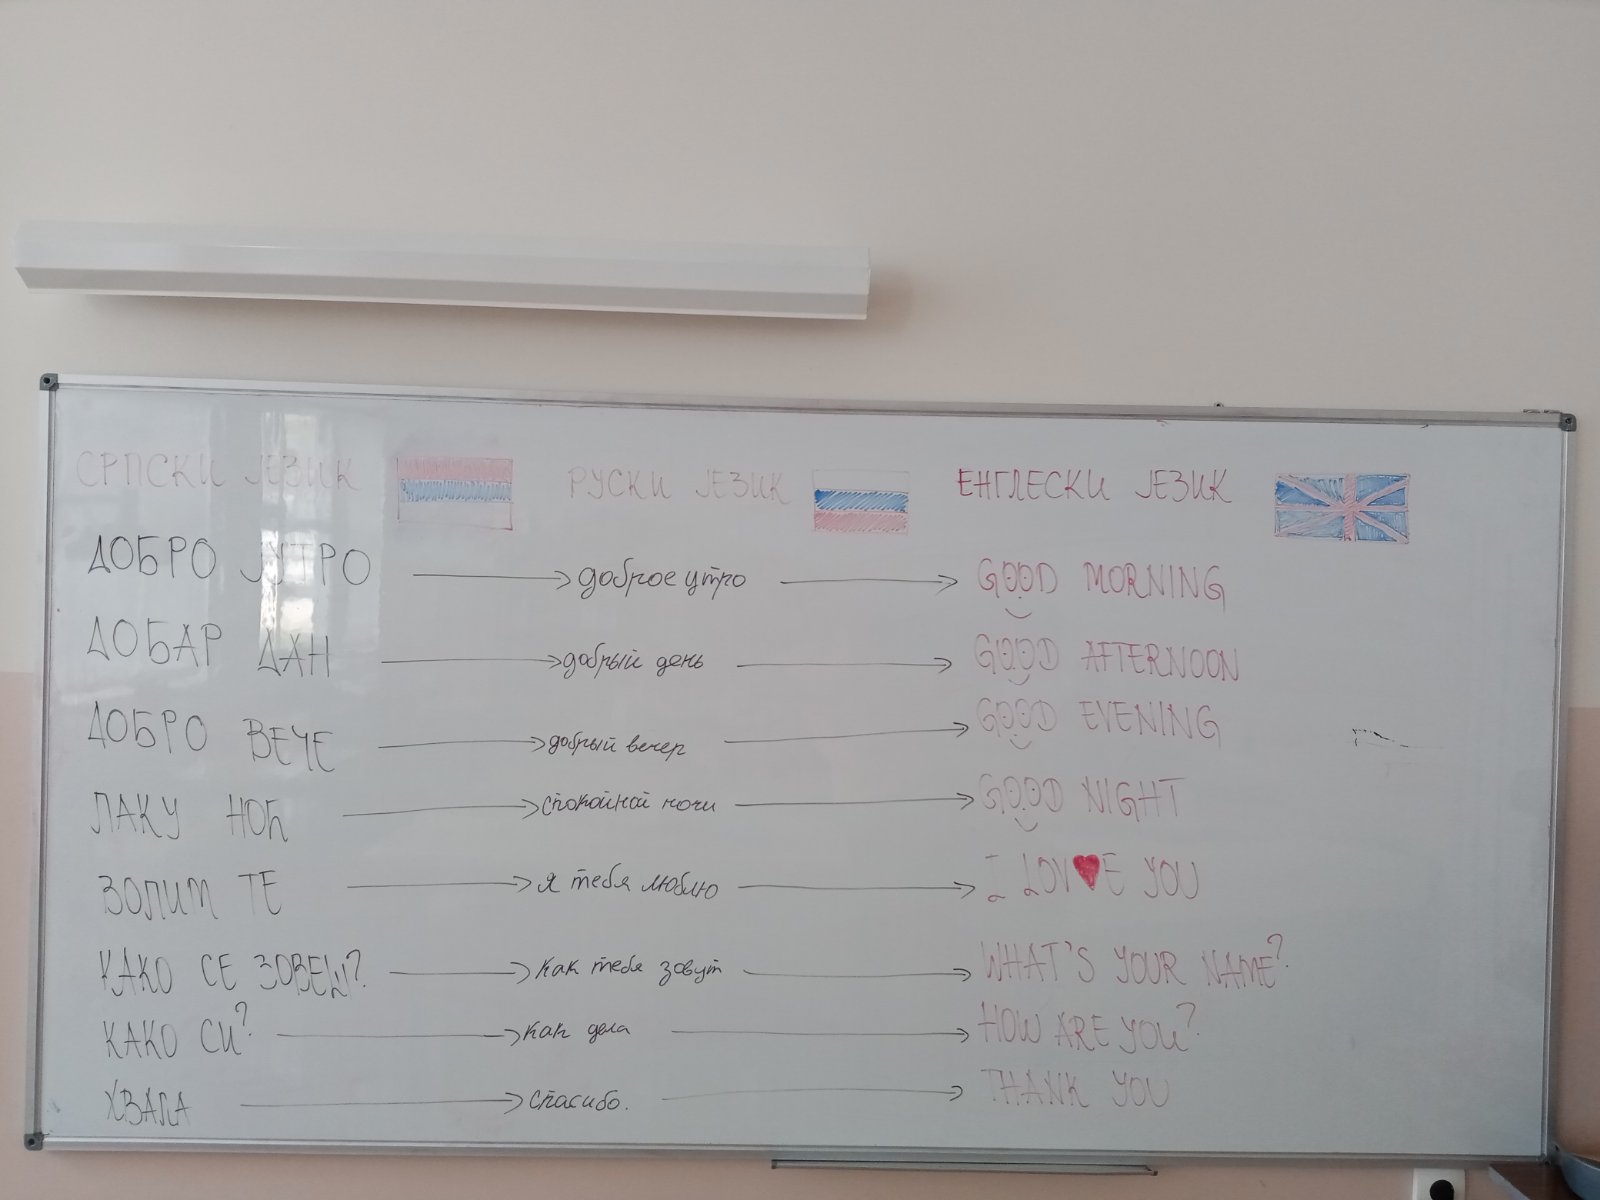 СРПСКИ ЈЕЗИК РУСКИ ЈЕЗИК ЕНГЛЕСКИ ЈЕЗИК
ДОБРО ЈУТРО доброе утро GOOD MORNING
ДОБАР ДАН добрый день GOOD AFTERNOON
ДОБРО ВЕЧЕ добрый вечер GOOD EVENING
ЛАКУ НОЋ спокойной ночи GOOD NIGHT
ВОЛИМ ТЕ я тебя люблю I LOVE YOU
КАКО СЕ ЗОВЕШ? как тебя зовут WHAT'S YOUR NAME?
КАКО СИ? как дела HOW ARE YOU?
ХВАЛА спасибо. THANK YOU